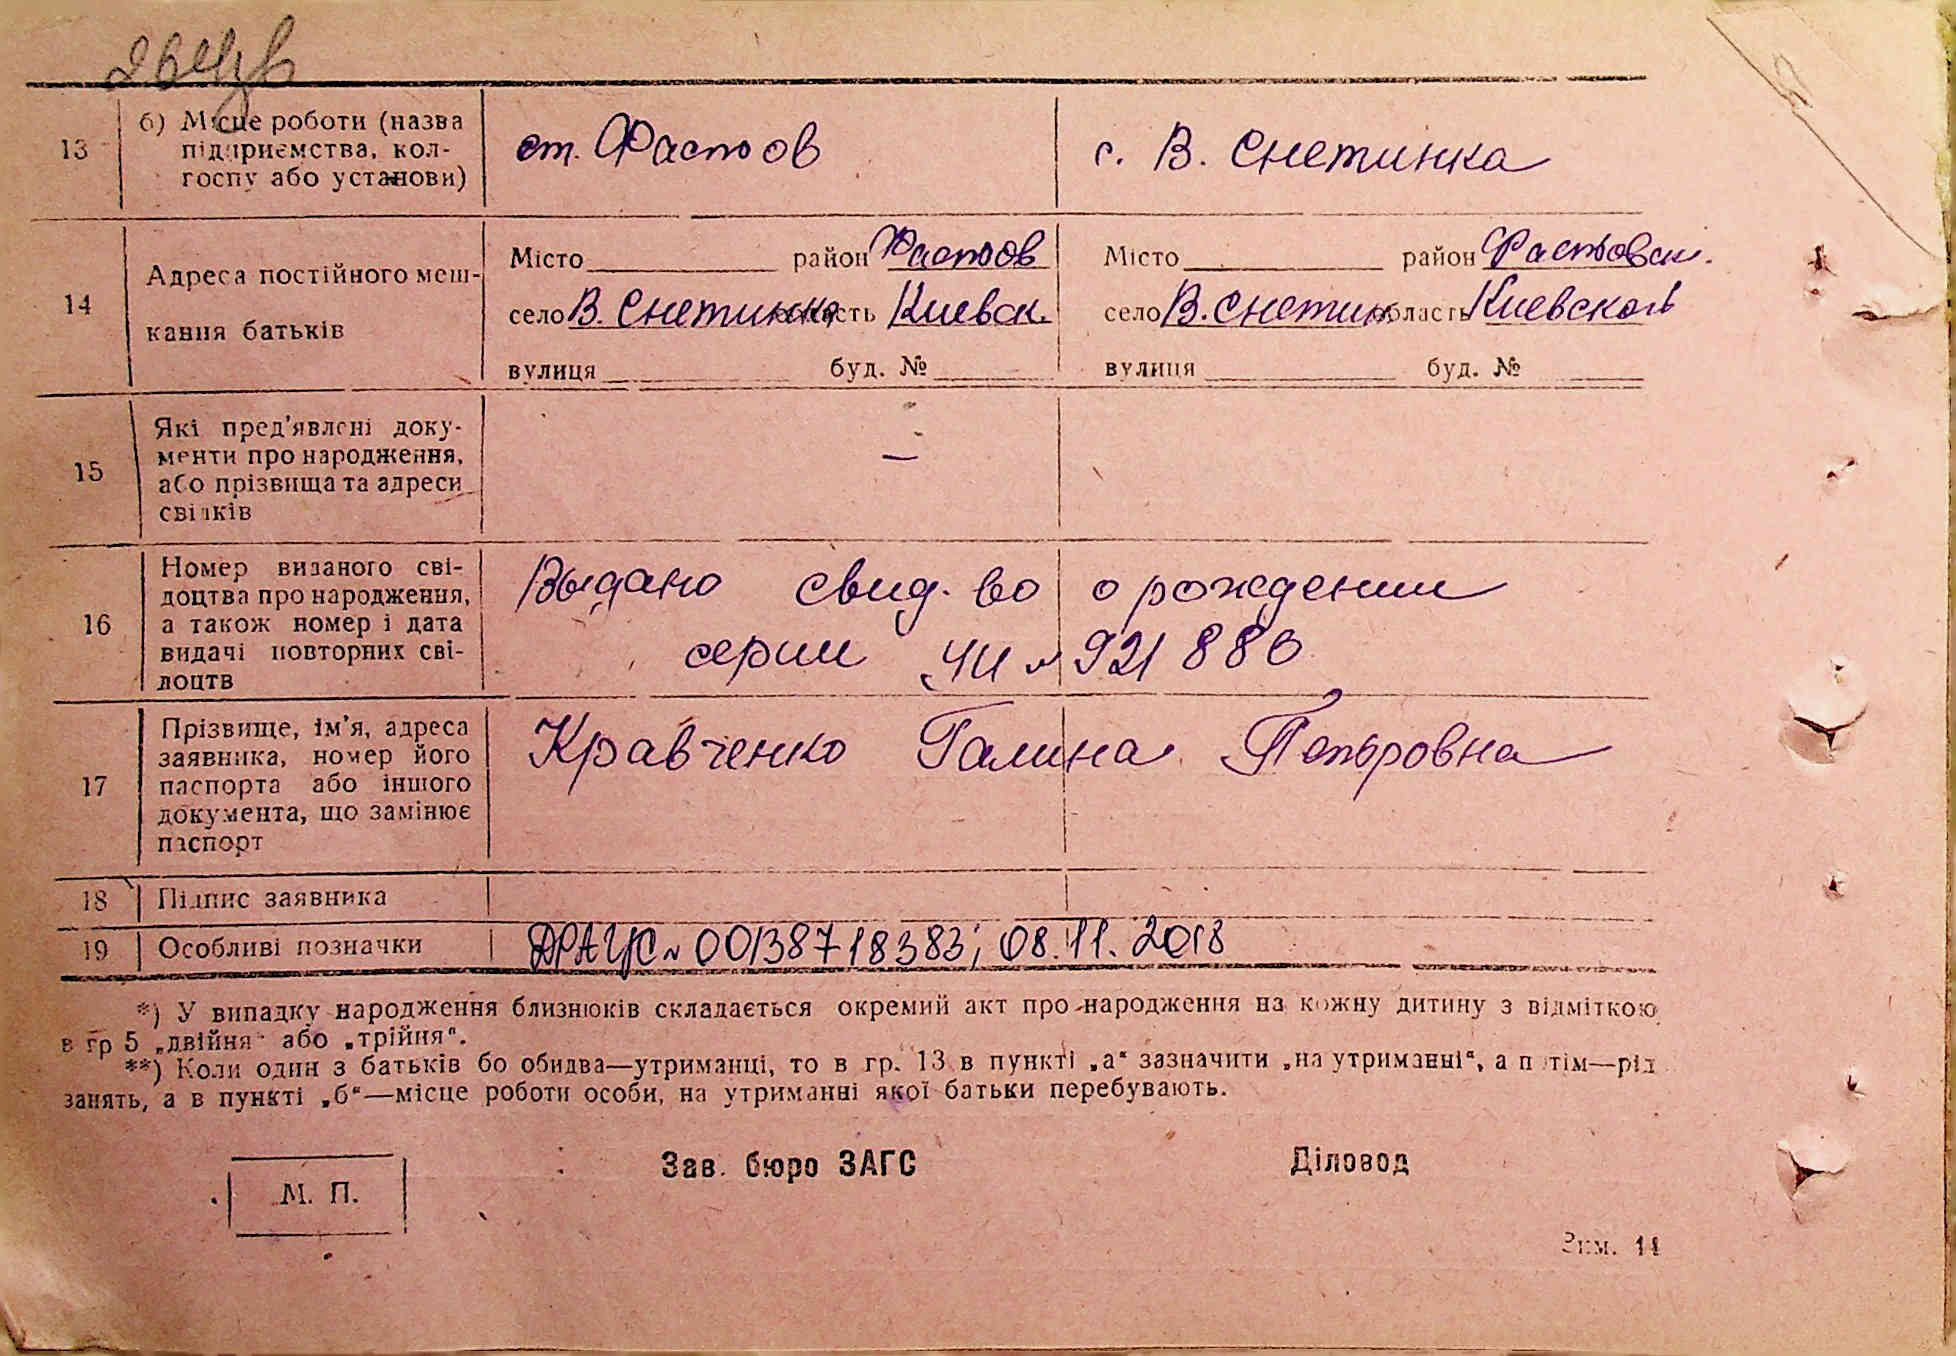 13
б) Місце роботи (назва
підприємства, кол-
госпу або установи)
ст. Фастов
с. В. Снетинка
14
Адреса постійного меш-
кання батьків
Місто район Фастов
село В. Снетинка область Киевск.
вулиця буд. №
Місто район Фастовск.
село В. Снетинк. область Киевской
вулиця буд. №
15
Які пред'явлені доку-
менти про народження,
або прізвища та адреси
свідків
—
16
Номер виданого сві-
доцтва про народження,
а також номер і дата
видачі повторних сві-
доцтв
Выдано свид-во о рождении
серии № 921880
17
Прізвище, ім'я, адреса
заявника, номер його
паспорта або іншого
документа, що замінює
паспорт
Кравченко Галина Петровна
18 Підпис заявника
19 Особливі позначки ДРАЦС № 00138718383; 08.11.2018
*) У випадку народження близнюків складається окремий акт про народження на кожну дитину з відміткою
в гр 5 „двійня" або „трійня".
**) Коли один з батьків бо обидва—утриманці, то в гр. 13 в пункті „а" зазначити „на утриманні", а потім—рід
занять, а в пункті „б"—місце роботи особи, на утриманні якої батьки перебувають.
М. П.
Зав. бюро ЗАГС
Діловод
Зим. 11